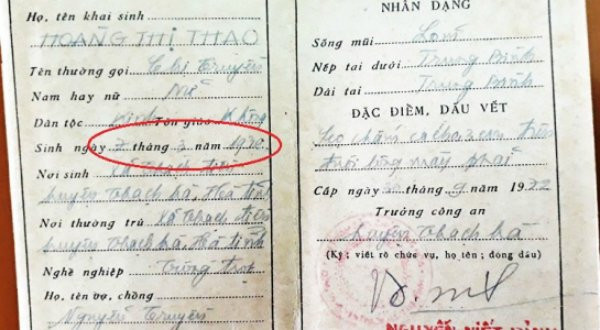 Họ, tên khai sinh
HOÀNG THỊ THAO
Tên thường gọi Chị Truyền
Nam hay nữ Nữ
Dân tộc Kinh Tôn giáo Không
Sinh ngày 7 tháng 2 năm 1930
Nơi sinh Xã Thạch Tiến
huyện Thạch hà, Hà Tĩnh
Nơi thường trú xã Thạch Tiến
huyện Thạch Hà, Hà Tĩnh
Nghề nghiệp
Họ, tên vợ, chồng
Nguyễn Truyền
NHÂN DẠNG
Sống mũi
Nếp tai dưới Trung Bình
Dái tai Trung Bình
ĐẶC ĐIỂM, DẤU VẾT
Sẹo chấm cách 2cm trên
đuôi lông mày phải
Cấp ngày tháng 9 năm 19
Trưởng công an
huyện Thạch Hà
(Ký; viết rõ chức vụ, họ tên; đóng dấu)
NGUYỄN VIẾT